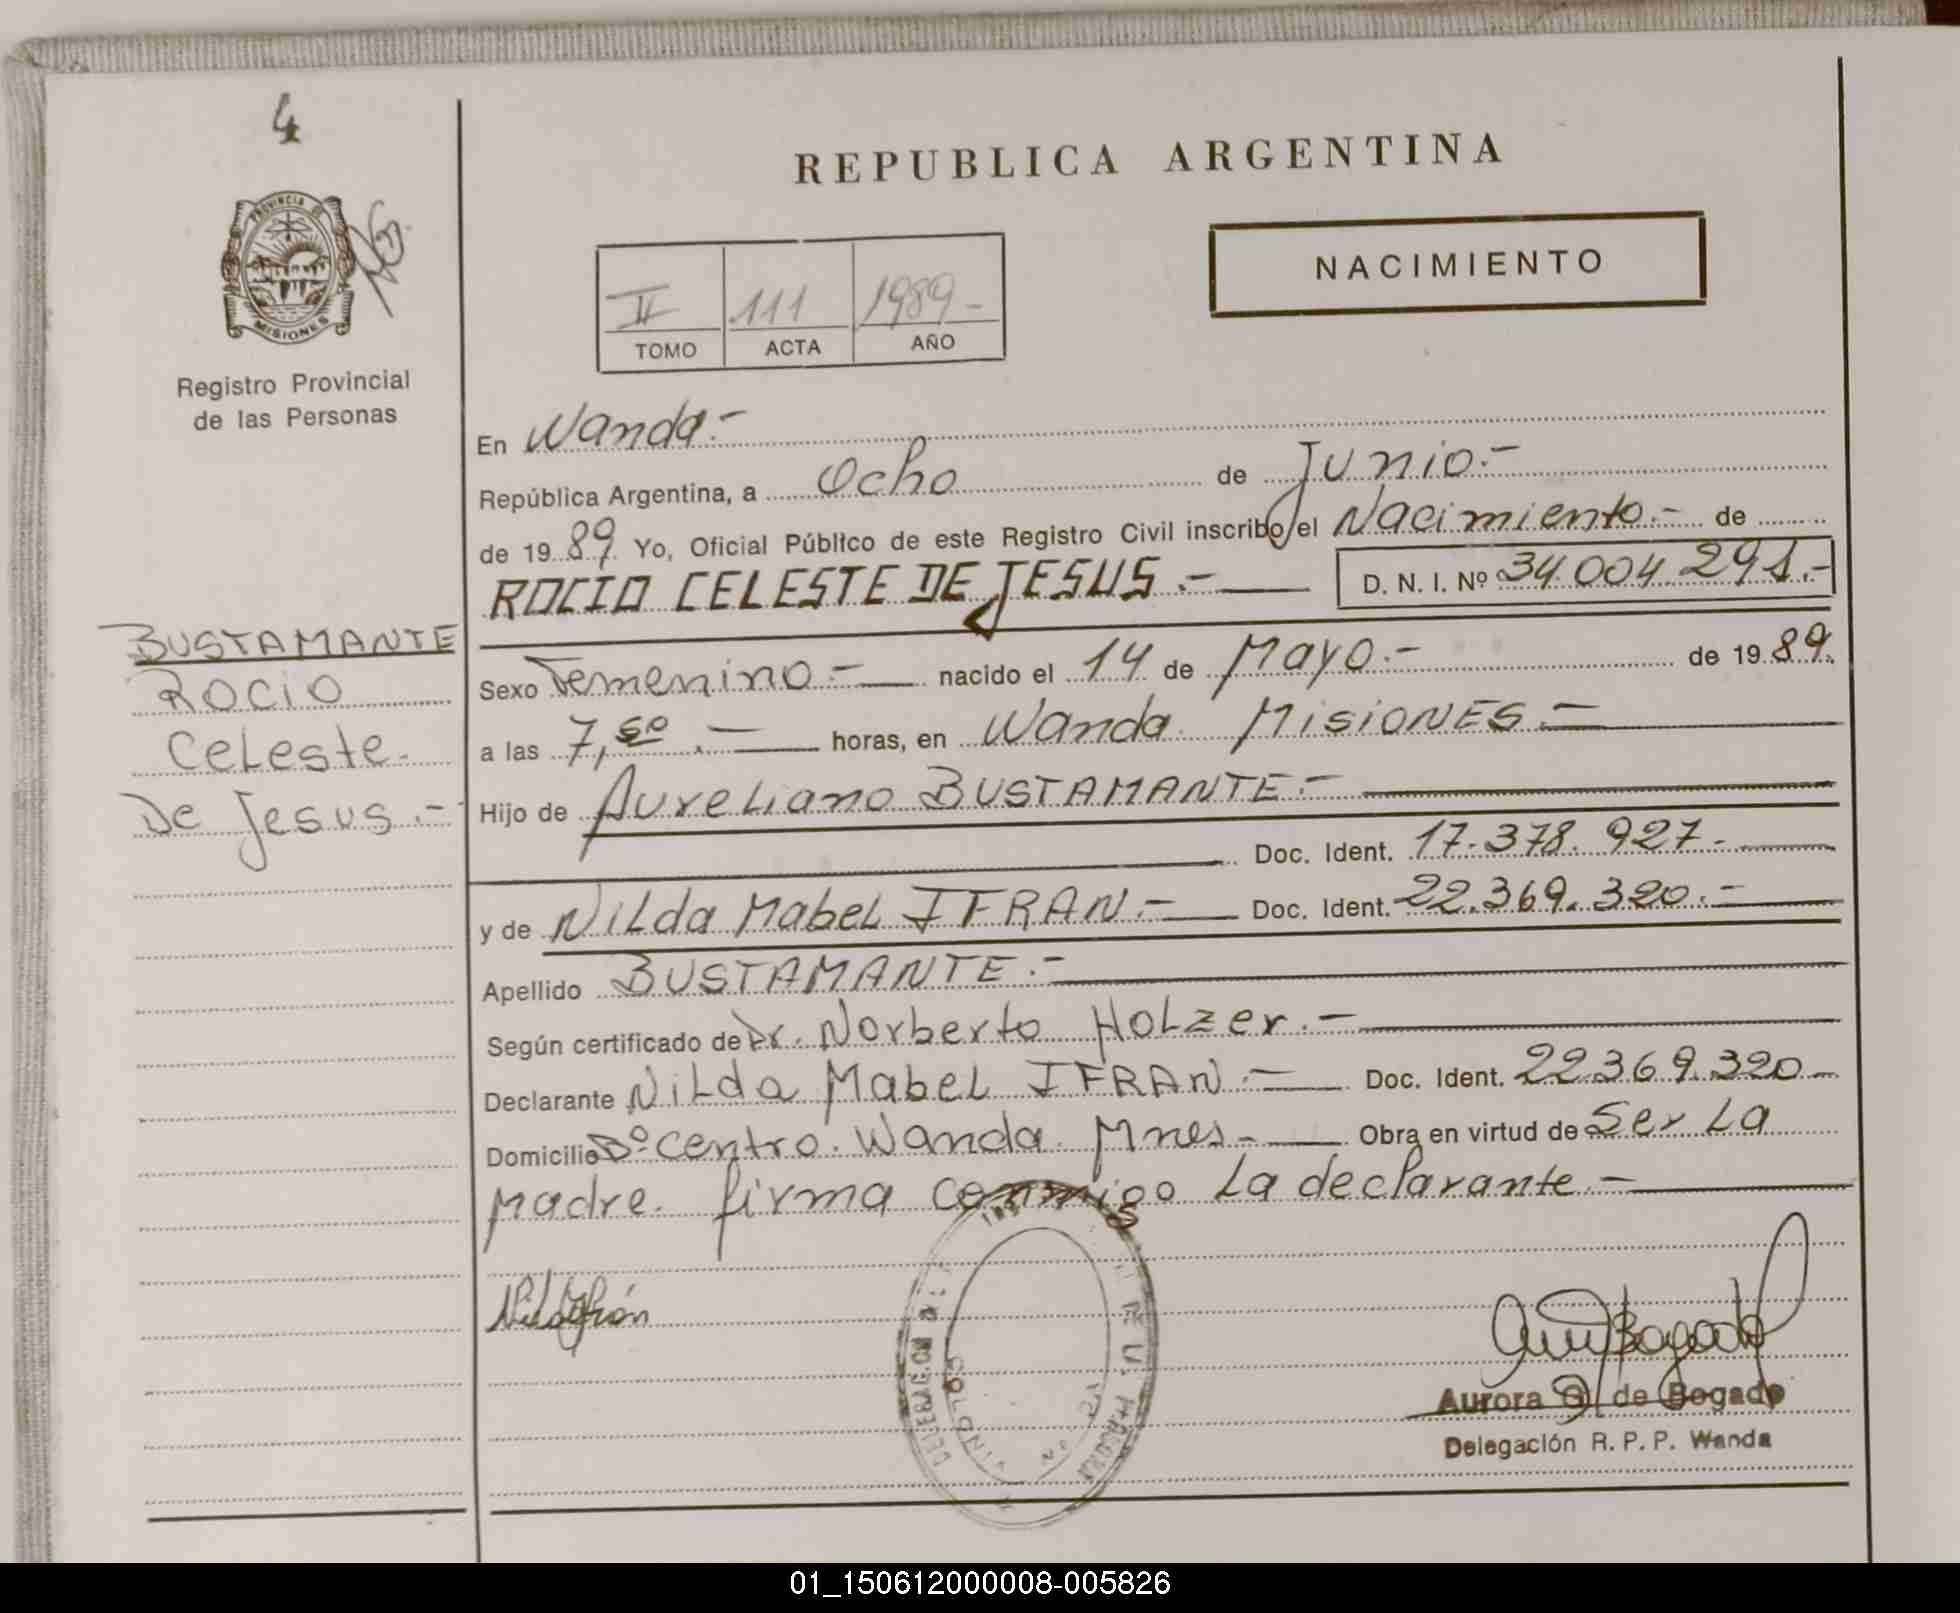 4
PROVINCIA DE
MISIONES
Registro Provincial
de las Personas
BUSTAMANTE
Rocio
Celeste.
De Jesus.-
REPUBLICA ARGENTINA
NACIMIENTO
II 111 1989-
TOMO ACTA AÑO
En Wanda.-
República Argentina, a Ocho de Junio.-
de 19 89 Yo, Oficial Público de este Registro Civil inscribo el Nacimiento.- de
ROCIO CELESTE DE JESUS.- D. N. I. Nº 34.004.291.-
Sexo Femenino.- nacido el 14 de Mayo.- de 19 89.
a las 7,50.- horas, en Wanda. MISIONES.-
Hijo de Aureliano BUSTAMANTE.-
Doc. Ident. 17.378.927.-
y de Nilda Mabel IFRAN.- Doc. Ident. 22.369.320.-
Apellido BUSTAMANTE.-
Según certificado de Dr. Norberto Holzer.-
Declarante Nilda Mabel IFRAN.- Doc. Ident. 22.369.320-
Domicilio Bº Centro. Wanda. Mnes.- Obra en virtud de Ser La
Madre. firma conmigo La declarante.-
Aurora G. de Bogado
Delegación R. P. P. Wanda
01_150612000008-005826